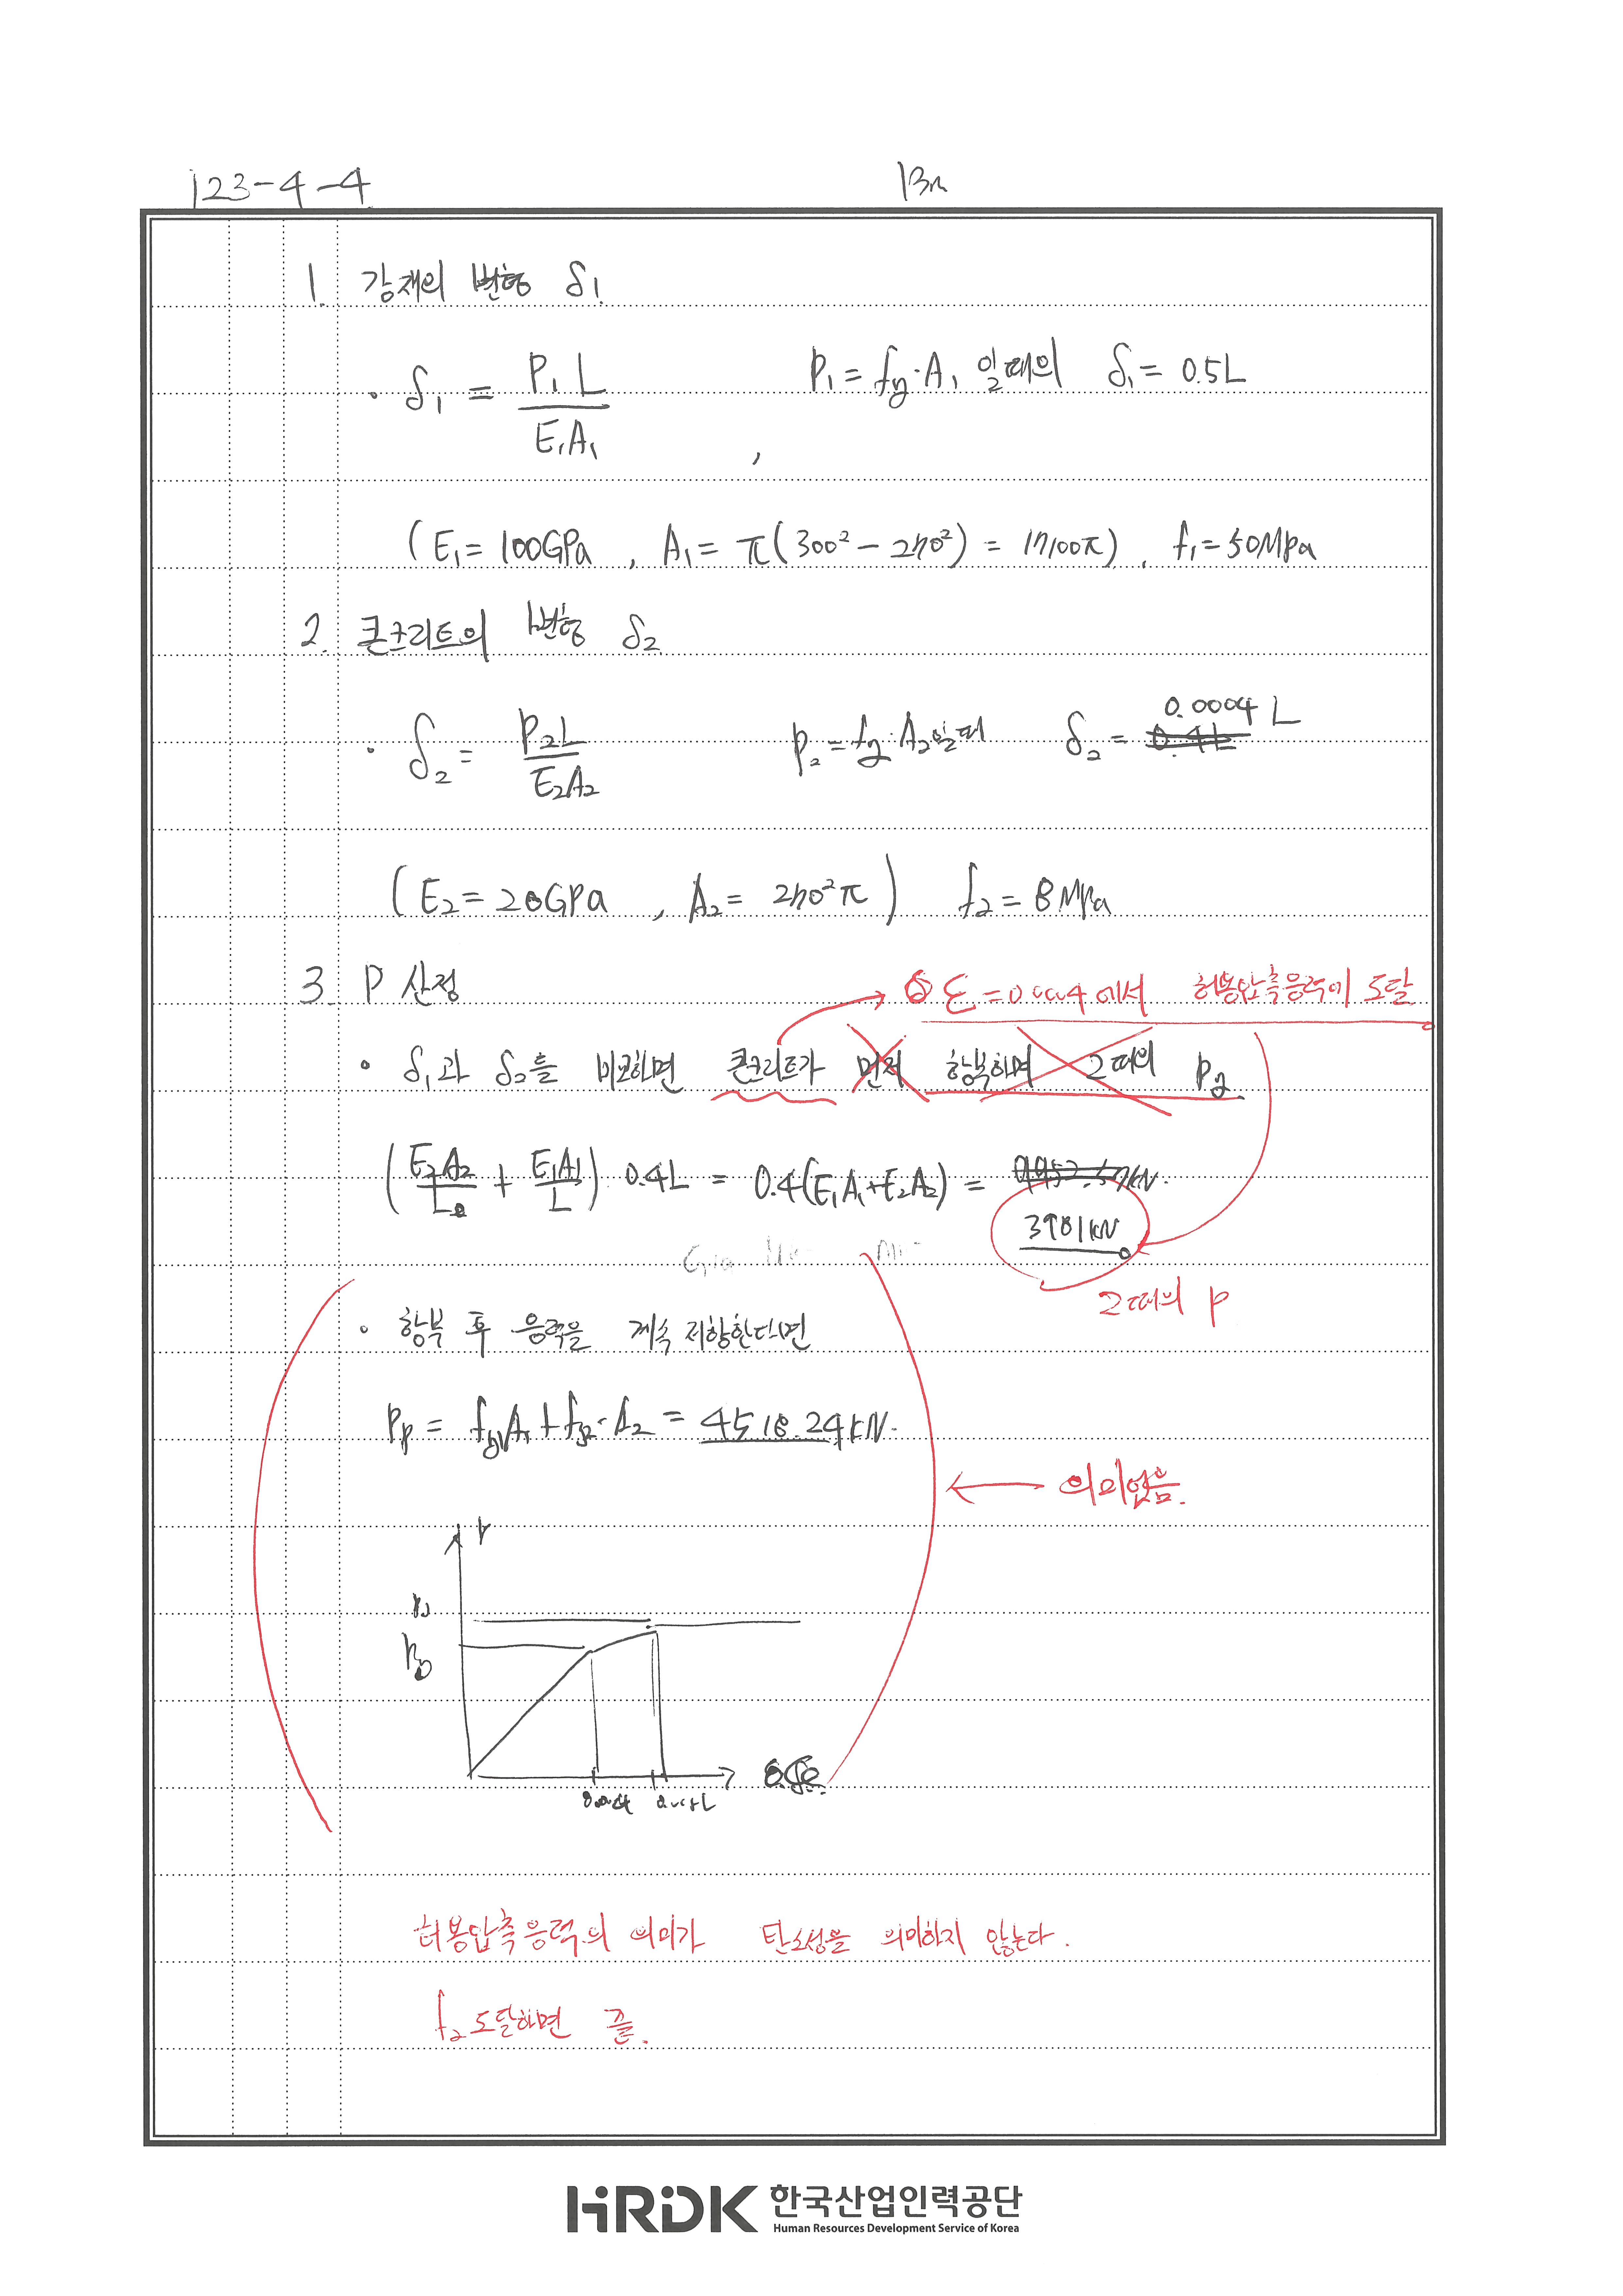 123-4-4
1. 강재의 변형 δ1.
· δ1 = P1 L / E1A1 , P1 = fy·A1 일때의 δ1 = 0.5L
(E1 = 100GPa, A1 = π(300² - 270²) = 17100π), f1 = 50MPa
2. 콘크리트의 변형 δ2
· δ2 = P2L / E2A2 P2 = fy·A2일때 δ2 = 0.0004 L
(E2 = 20GPa, A2 = 270²π) f2 = 8MPa
3. P 산정
ε = 0.0004 에서 허용압축응력에 도달
· δ1과 δ2를 비교하면 콘크리트가 먼저 항복하며 2때의 Py
(E2A2/L + E1A1/L) 0.4L = 0.4(E1A1+E2A2) =
3981kN
2때의 P
· 항복 후 응력을 계속 저항한다면
Pp = fy1A1 + fy2·A2 = 4518.24kN.
← 의미없음.
허용압축응력의 의미가 탄소성을 의미하지 않는다.
f2 도달하면 끝.
HRDK 한국산업인력공단
Human Resources Development Service of Korea